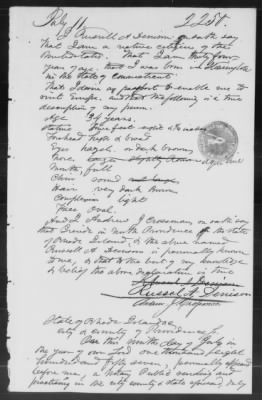 July 11 2258.
I, Russell A Denison, on oath say
that I am a native citizen of the
United States. That I am thirty four
years of age. that I was born in Stonington
in the State of Connecticut
That I desire a passport to enable me to
visit Europe, and that the following is a true
description of my person.
Age 34 years.
Stature feet
Forehead high & broad
Eyes hazel, or dark brown
Nose,
Mouth, full
Chin round
Hair very dark brown
Complexion light
Face oval.
And I Andrew J Crossman on oath say
that I reside in North Providence in the State
of Rhode Island, & the above named
Russell A Denison is personally known
to me, & that to the best of my knowledge
& belief the above declaration is true
Russell A. Denison
Russell A Denison
State of Rhode Island
City & County of Providence
On this ninth day of July in
the year of our Lord one thousand eight
hundred and fifty seven, personally appeared
before me, a Notary Public residing and
practising in the city county & state aforesaid, duly